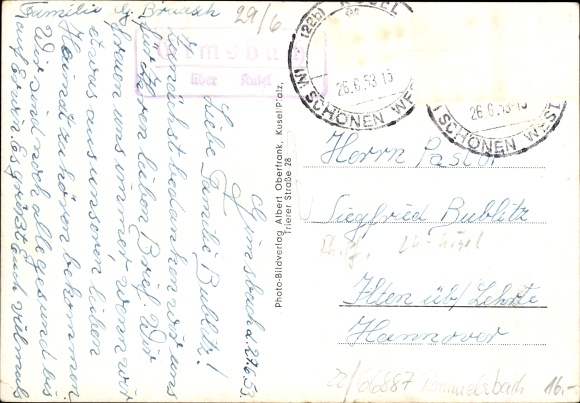 Gimsbach d. 27.6.53.
Liebe Familie Bublitz!
Zunächst bedanken wir uns
für Ihren lieben Brief. Wir
freuen uns immer, wenn wir
etwas aus unserer lieben
Heimat zu hören bekommen.
Wir sind noch alle gesund bis
auf Erwin. Es grüßt euch vielmals
Familie
29/6
Gimsbach
über Kusel
(22b) KUSEL
26.6.53-15
IM SCHÖNEN WEST
26.6.53-15
M SCHÖNEN WEST
Photo-Bildverlag Albert Oberfrank, Kusel Pfalz,
Trierer Straße 28
Herrn Pastor
Siegfried Bublitz
Ilten üb/ Lehrte
Hannover
22/66887 Rammelsbach 16.-